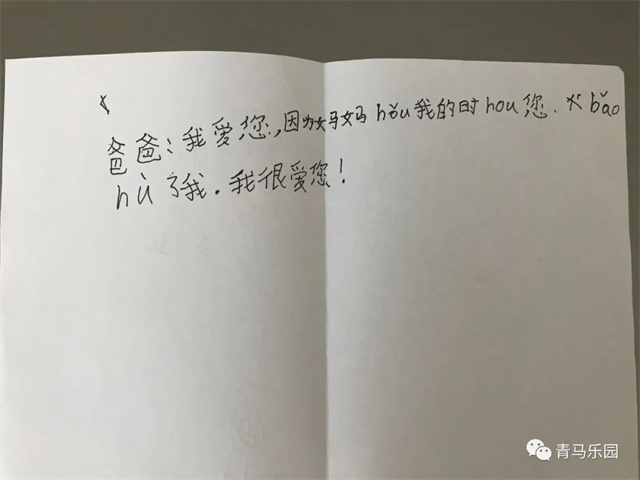 爸爸：我爱您，因为妈妈hǒu我的时hou您.犬bǎo
hù了我.我很爱您！
青马乐园